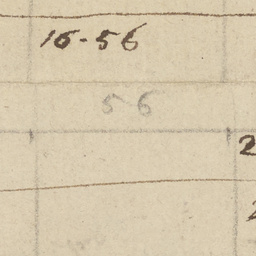 16-56
56
2
2